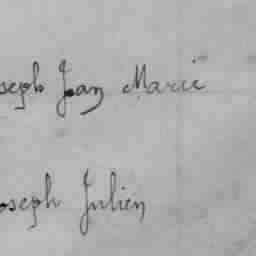 oseph Jean Marie
oseph Julien